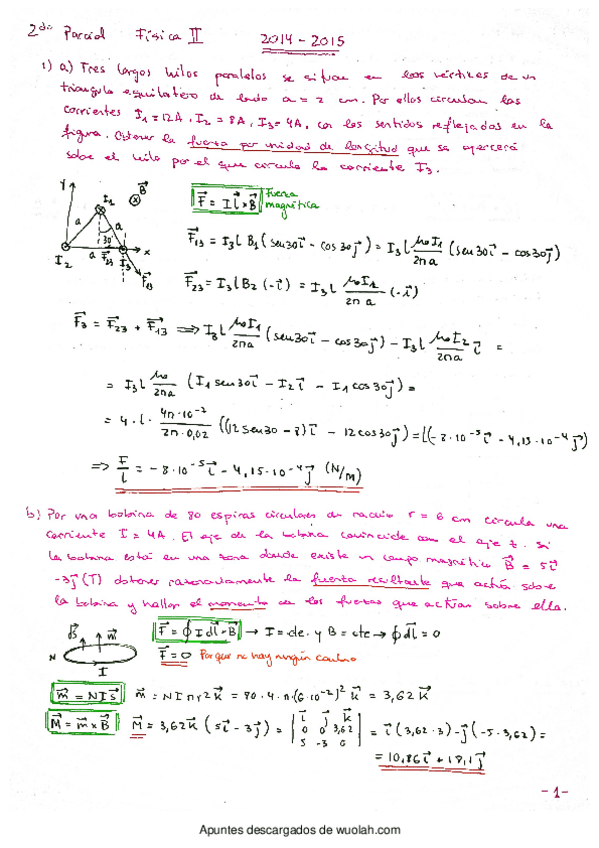 2do Parcial Física II 2014-2015
1) a) Tres largos hilos paralelos se situan en los vértices de un
triangulo equilatero de lado a = 2 cm. Por ellos circulan las
corrientes I₁ = 12A, I₂ = 8A, I₃ = 4A, con los sentidos reflejados en la
figura. Obtener la fuerza por unidad de longitud que se ejercerá
sobre el hilo por el que circula la corriente I₃.
Y I₁ B⃗ a a 30 I₂ a F⃗₂₃ I₃ x F⃗₁₃
F⃗ = I l⃗ × B⃗ Fuerza magnética
F⃗₁₃ = I₃ l B₁ (sen30 i⃗ - cos30 j⃗) = I₃ l μ₀I₁/2πa (sen30 i⃗ - cos30 j⃗)
F⃗₂₃ = I₃ l B₂ (-i⃗) = I₃ l μ₀I₂/2πa (-i⃗)
F⃗₃ = F⃗₂₃ + F⃗₁₃ ⇒ I₃ l μ₀I₁/2πa (sen30 i⃗ - cos30 j⃗) - I₃ l μ₀I₂/2πa i⃗ =
= I₃ l μ₀/2πa (I₁ sen30 i⃗ - I₂ i⃗ - I₁ cos30 j⃗) =
= 4 · l · 4π·10⁻⁷/2π·0,02 ((12 sen30 - 8) i⃗ - 12 cos30 j⃗) = l (-8·10⁻⁵ i⃗ - 4,15·10⁻⁴ j⃗)
⇒ F⃗/l = -8·10⁻⁵ i⃗ - 4,15·10⁻⁴ j⃗ (N/m)
b) Por una bobina de 80 espiras circulares de radio r = 6 cm circula una
corriente I = 4A. El eje de la bobina coincide con el eje z. Si
la bobina está en una zona donde existe un campo magnético B⃗ = 5i⃗
-3j⃗ (T) obtener razonadamente la fuerza resultante que actúa sobre
la bobina y hallar el momento de las fuerzas que actúan sobre ella.
B⃗ m⃗ N I
F⃗ = ∮ I dl⃗ × B⃗ → I = cte. y B = cte → ∮ dl⃗ = 0
F⃗ = 0 Porque no hay ningún cambio
m⃗ = N I S⃗ m⃗ = N I π r² k⃗ = 80 · 4 · π · (6·10⁻²)² k⃗ = 3,62 k⃗
M⃗ = m⃗ × B⃗ M⃗ = 3,62 k⃗ × (5i⃗ - 3j⃗) = | i⃗ j⃗ k⃗ 0 0 3,62 5 -3 0 | = i⃗ (3,62 · 3) - j⃗ (-5 · 3,62) =
= 10,86 i⃗ + 18,1 j⃗
-1-
Apuntes descargados de wuolah.com